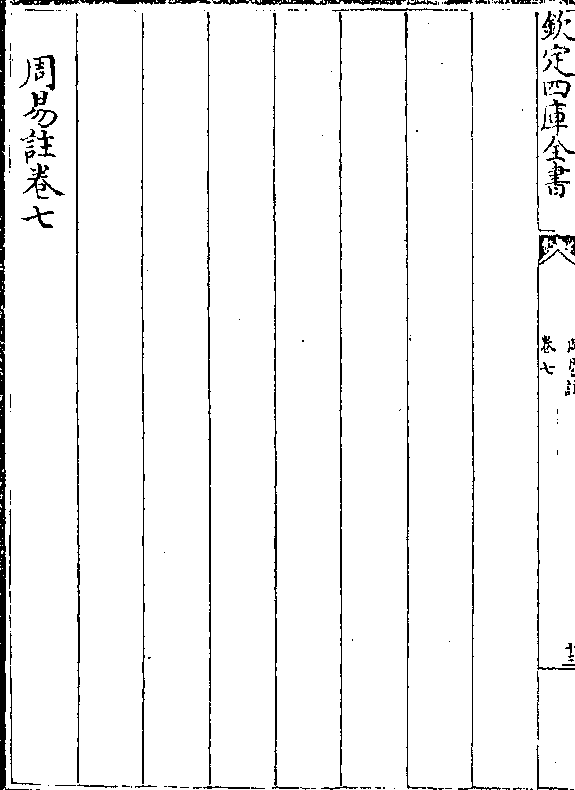 欽定四庫全書
周易註
卷七
周易註卷七